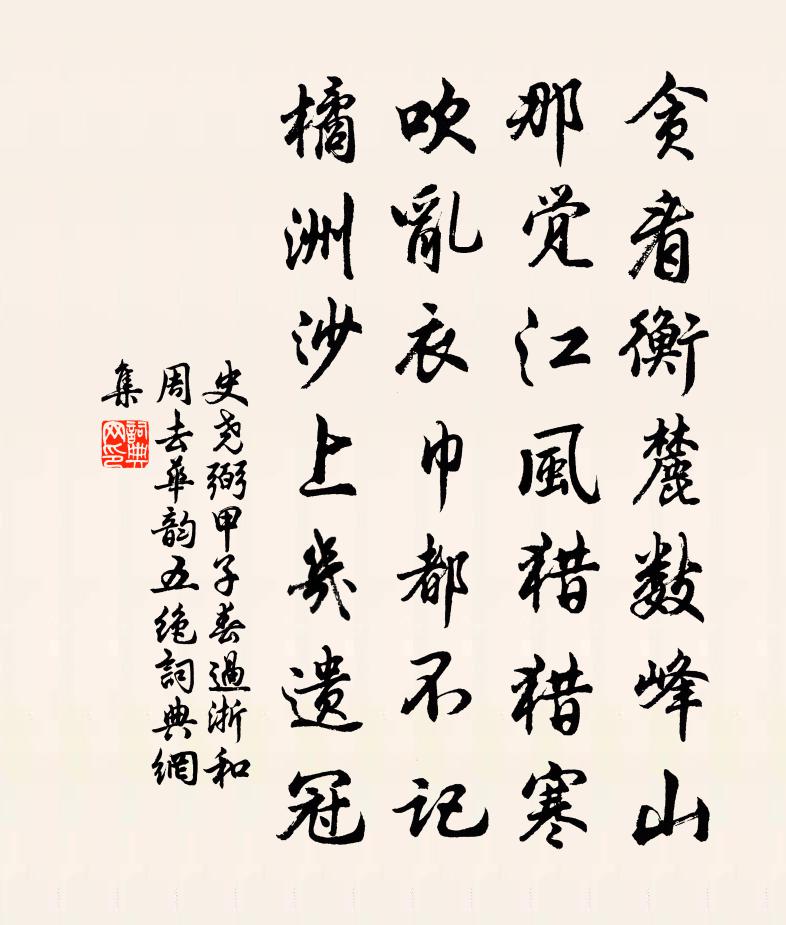 贪看衡麓数峰山
那觉江風猎猎寒
吹亂衣巾都不记
橘洲沙上几遗冠
史尧弼甲子春過浙和
周去華韵五绝詞典網
集
詞典网印